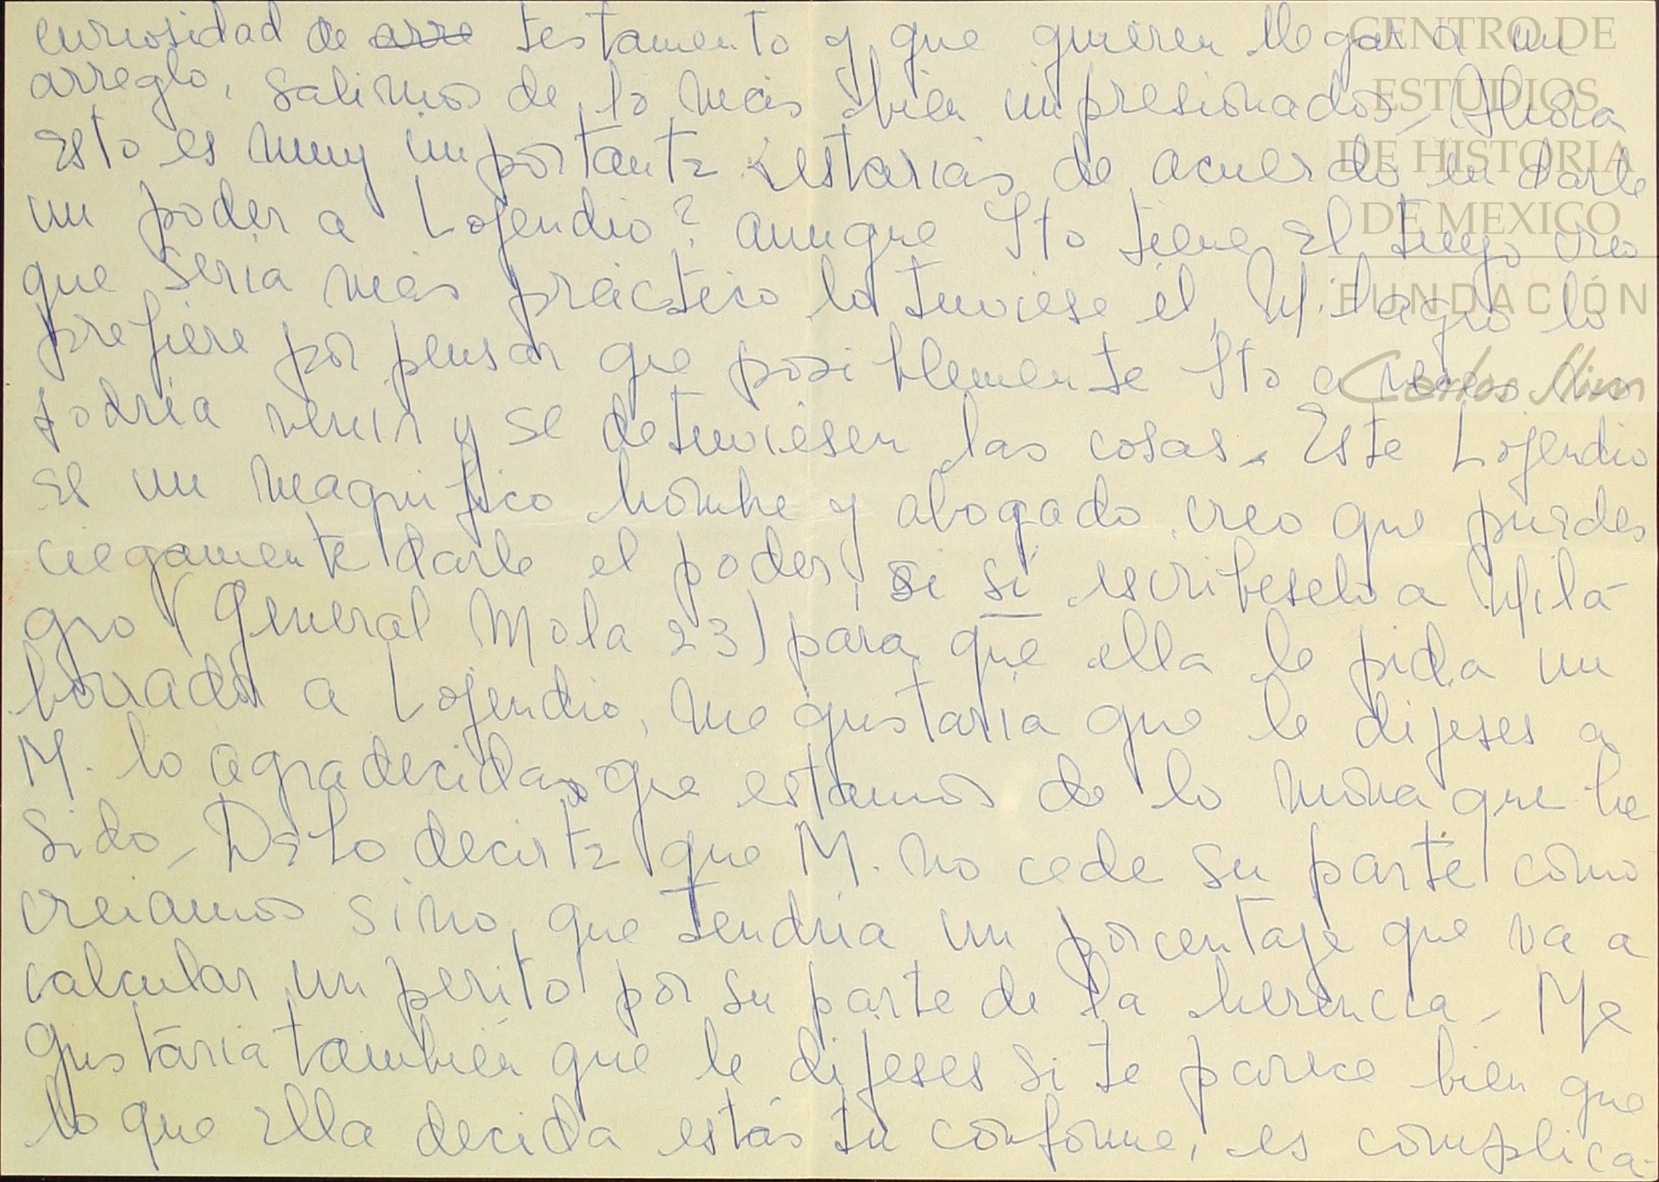 curiosidad de arre testamento y que quieren llegar a un
arreglo, salimos de lo más bien impresionados, Ahora
Esto es muy importante ¿estarias de acuerdo en darle
un poder a Lojendio? aunque Sto tiene el tuyo creo
que seria más práctico lo tuviese el, Milagro lo
prefiere por pensar que posiblemente Sto a veces no
podria venir y se detuviesen las cosas. Este Lojendio
es un magnifico hombre y abogado creo que puedes
ciegamente darle el poder, si si escribeselo a Mila-
gro (General Mola 23) para que ella le pida un
borrador a Lojendio, me gustaria que le dijeses a
M. lo agradecidas que estamos de lo mona que ha
sido, Debo decirte que M. no cede su parte como
creiamos sino, que tendria un porcentaje que va a
calcular un perito por su parte de la herencia, Me
gustaria también que le dijeses si te parece bien que
lo que ella decida estás tu conforme, es complica-
CENTRO DE
ESTUDIOS
DE HISTORIA
DE MEXICO
FUNDACIÓN
Carlos Slim